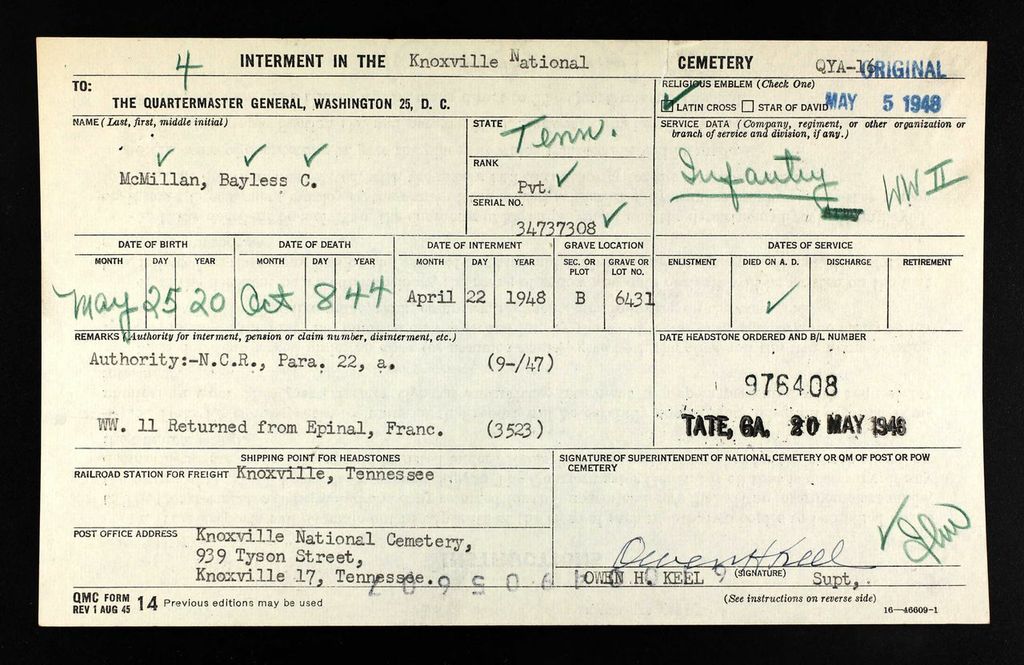 4 INTERMENT IN THE Knoxville National CEMETERY QYA-16 ORIGINAL
TO:
THE QUARTERMASTER GENERAL, WASHINGTON 25, D. C.
RELIGIOUS EMBLEM (Check One)
LATIN CROSS STAR OF DAVID MAY 5 1948
NAME (Last, first, middle initial)
McMillan, Bayless C.
STATE
Tenn.
RANK
Pvt.
SERIAL NO.
34737308
SERVICE DATA (Company, regiment, or other organization or
branch of service and division, if any.)
Infantry WW II
Army
DATE OF BIRTH DATE OF DEATH DATE OF INTERMENT GRAVE LOCATION DATES OF SERVICE
MONTH DAY YEAR MONTH DAY YEAR MONTH DAY YEAR SEC. OR PLOT GRAVE OR LOT NO. ENLISTMENT DIED ON A. D. DISCHARGE RETIREMENT
May 25 20 Oct 8 44 April 22 1948 B 6431
REMARKS (Authority for interment, pension or claim number, disinterment, etc.)
Authority:-N.C.R., Para. 22, a. (9-/47)
WW. 11 Returned from Epinal, Franc. (3523)
DATE HEADSTONE ORDERED AND B/L NUMBER
976408
TATE, GA. 20 MAY 1948
SHIPPING POINT FOR HEADSTONES
RAILROAD STATION FOR FREIGHT Knoxville, Tennessee
POST OFFICE ADDRESS Knoxville National Cemetery,
939 Tyson Street,
Knoxville 17, Tennessee.
SIGNATURE OF SUPERINTENDENT OF NATIONAL CEMETERY OR QM OF POST OR POW
CEMETERY
Owen H Keel
OWEN H. KEEL (SIGNATURE) Supt,.
(See instructions on reverse side)
QMC FORM
REV 1 AUG 45 14 Previous editions may be used
16—46609-1